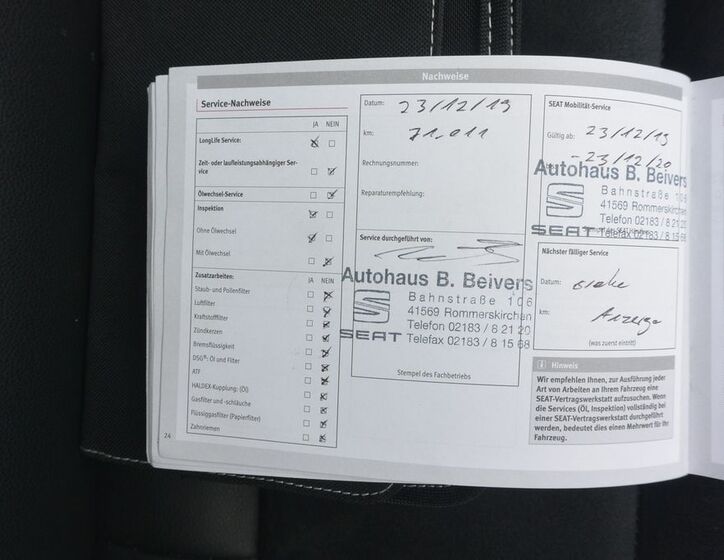 Nachweise
Service-Nachweise
JA NEIN
LongLife Service:
Zeit- oder laufleistungsabhängiger Ser-
vice
Ölwechsel-Service
Inspektion
Ohne Ölwechsel
Mit Ölwechsel
Zusatzarbeiten: JA NEIN
Staub- und Pollenfilter
Luftfilter
Kraftstofffilter
Zündkerzen
Bremsflüssigkeit
DSG®: Öl und Filter
ATF
HALDEX-Kupplung: (Öl)
Gasfilter und -schläuche
Flüssiggasfilter (Papierfilter)
Zahnriemen
24
Datum: 23/12/19
km: 71.011
Rechnungsnummer:
Reparaturempfehlung:
Service durchgeführt von:
Autohaus B. Beivers
Bahnstraße 106
41569 Rommerskirchen
Telefon 02183 / 8 21 20
SEAT Telefax 02183 / 8 15 68
Stempel des Fachbetriebs
SEAT Mobilität-Service
Gültig ab: 23/12/19
- 23/12/20
Autohaus B. Beivers
Bahnstraße 106
41569 Rommerskirchen
Telefon 02183 / 8 21 20
SEAT Telefax 02183 / 8 15 68
Nächster fälliger Service
Datum: siehe
km: Anzeige
(was zuerst eintritt)
Hinweis
Wir empfehlen Ihnen, zur Ausführung jeder
Art von Arbeiten an Ihrem Fahrzeug eine
SEAT-Vertragswerkstatt aufzusuchen. Wenn
die Services (Öl, Inspektion) vollständig bei
einer SEAT-Vertragswerkstatt durchgeführt
werden, bedeutet dies einen Mehrwert für Ihr
Fahrzeug.